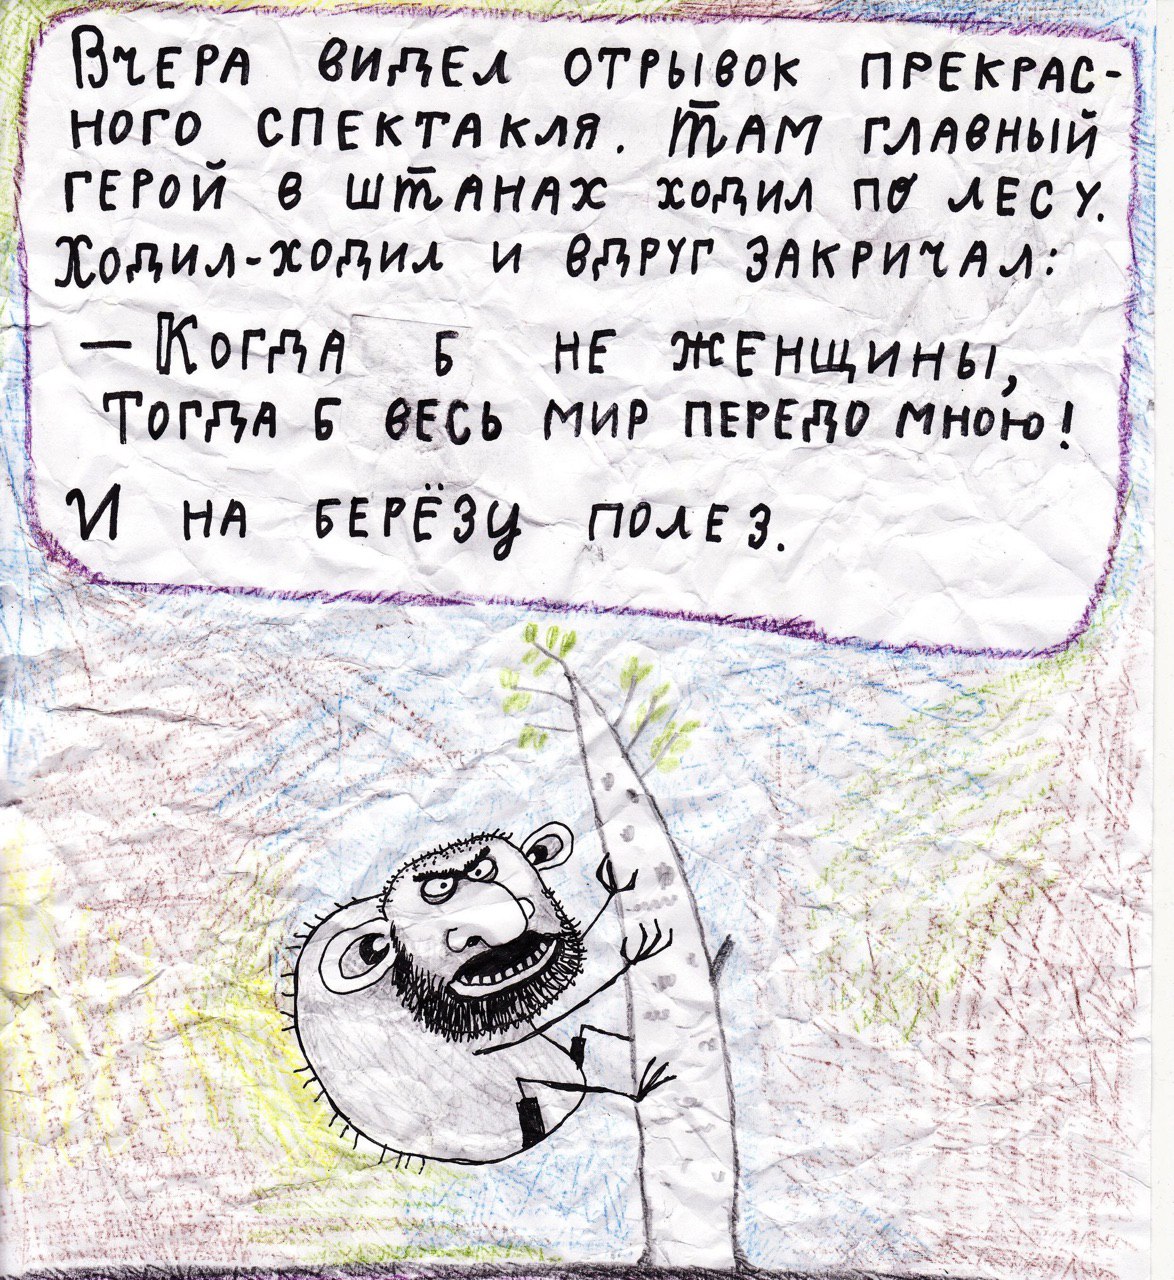 Вчера видел отрывок прекрас-
ного спектакля. Там главный
герой в штанах ходил по лесу.
Ходил-ходил и вдруг закричал:
— Когда б не женщины,
Тогда б весь мир передо мною!
И на берёзу полез.